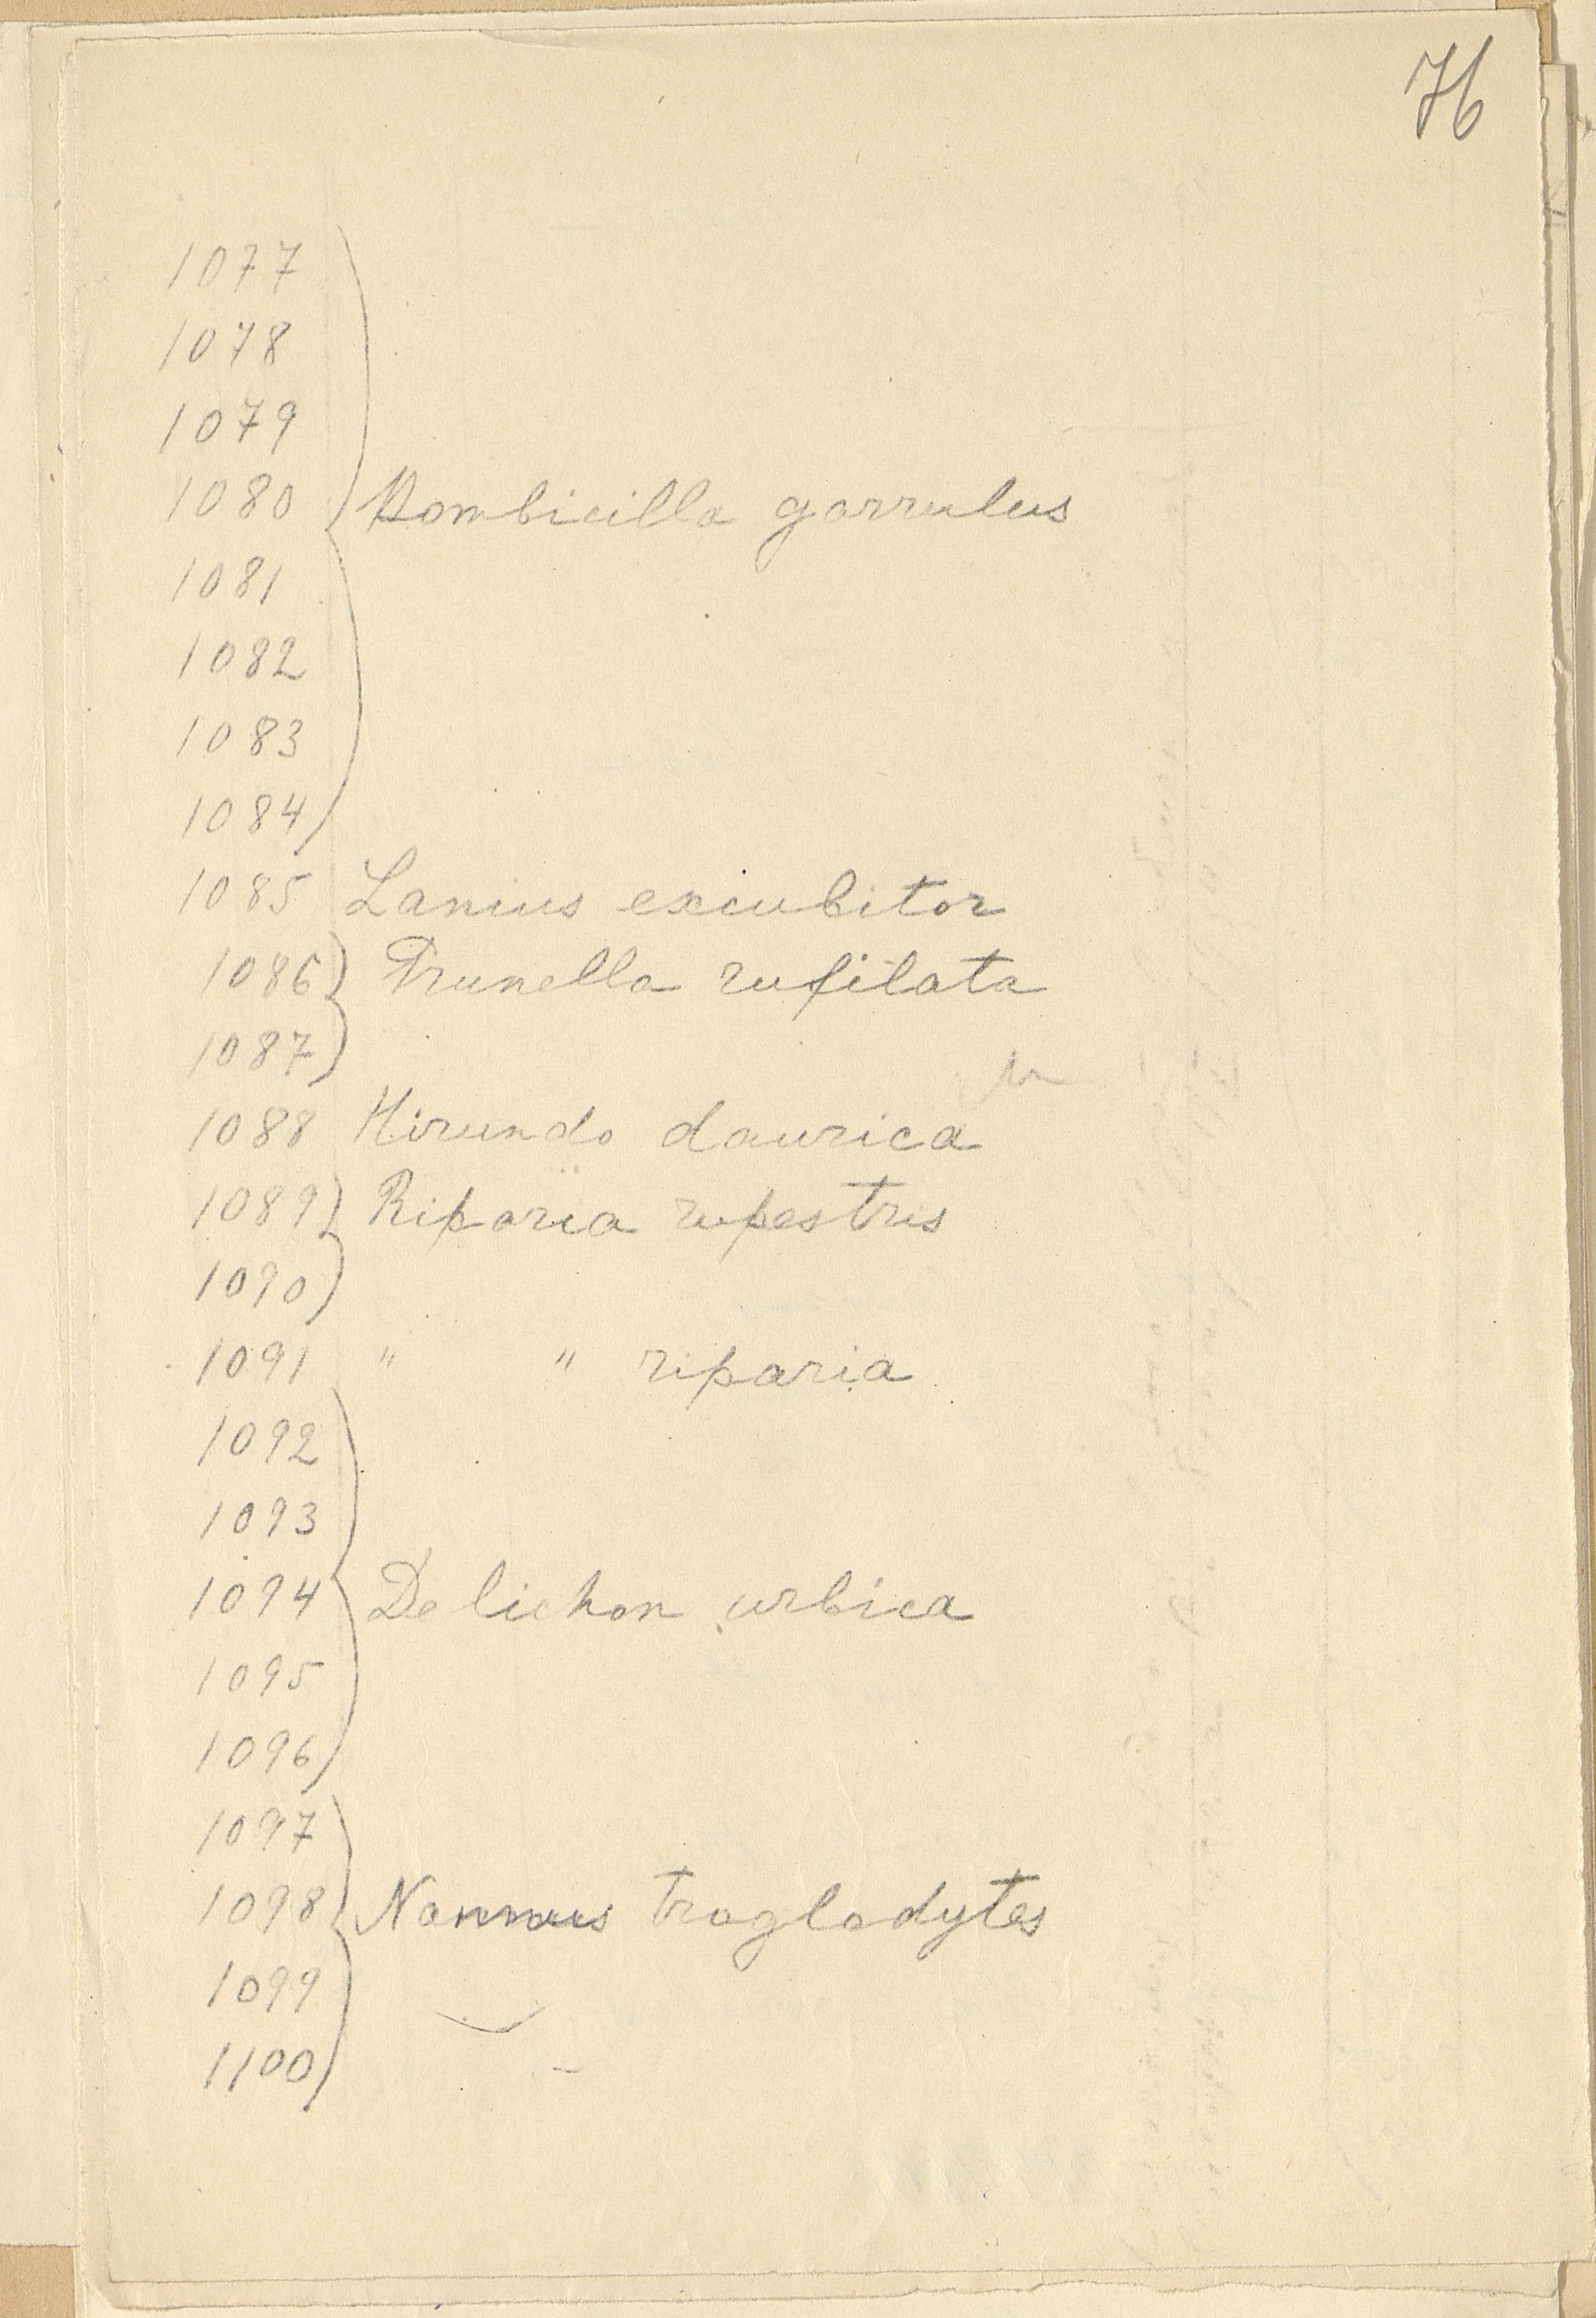 76
1077
1078
1079
1080 Bombicilla garrulus
1081
1082
1083
1084
1085 Lanius excubitor
1086 Prunella rufilata
1087
1088 Hirundo daurica
1089 Riparia rupestris
1090
1091 " " riparia
1092
1093
1094 Delichon urbica
1095
1096
1097
1098 Nannus troglodytes
1099
1100